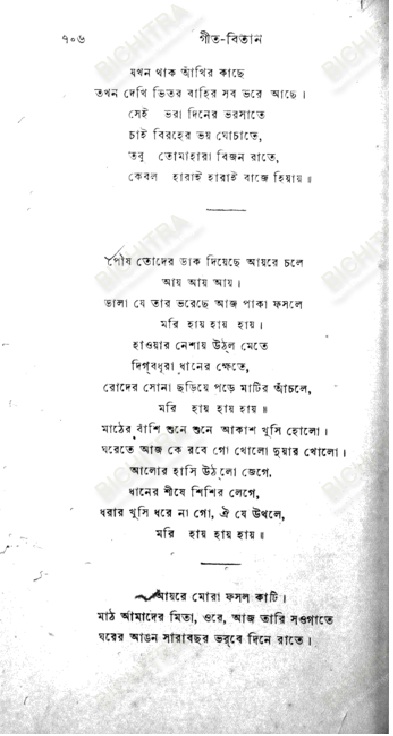 ৭০৬ গীত-বিতান
যখন থাক আঁখির কাছে
তখন দেখি ভিতর বাহির সব ভরে আছে।
সেই ভরা দিনের ভরসাতে
চাই বিরহের ভয় ঘোচাতে,
তবু তোমাহারা বিজন রাতে,
কেবল হারাই হারাই বাজে হিয়ায়॥
পৌষ তোদের ডাক দিয়েছে আয়রে চলে
আয় আয় আয়।
ডালা যে তার ভরেছে আজ পাকা ফসলে
মরি হায় হায় হায়।
হাওয়ার নেশায় উঠ্‌ল মেতে
দিগ্বধূরা ধানের ক্ষেতে,
রোদের সোনা ছড়িয়ে পড়ে মাটির আঁচলে,
মরি হায় হায় হায়॥
মাঠের বাঁশি শুনে শুনে আকাশ খুসি হোলো॥
ঘরেতে আজ কে রবে গো খোলো দুয়ার খোলো।
আলোর হাসি উঠ্‌লো জেগে,
ধানের শীষে শিশির লেগে,
ধরার খুসি ধরে না গো, ঐ যে উথলে,
মরি হায় হায় হায়॥
আয়রে মোরা ফসল কাটি।
মাঠ আমাদের মিতা, ওরে, আজ তারি সওগাতে
ঘরের আঙন সারাবছর ভর্‌বে দিনে রাতে॥
BICHITRA
BICHITRA
BICHITRA
BICHITRA
BICHITRA
BICHITRA